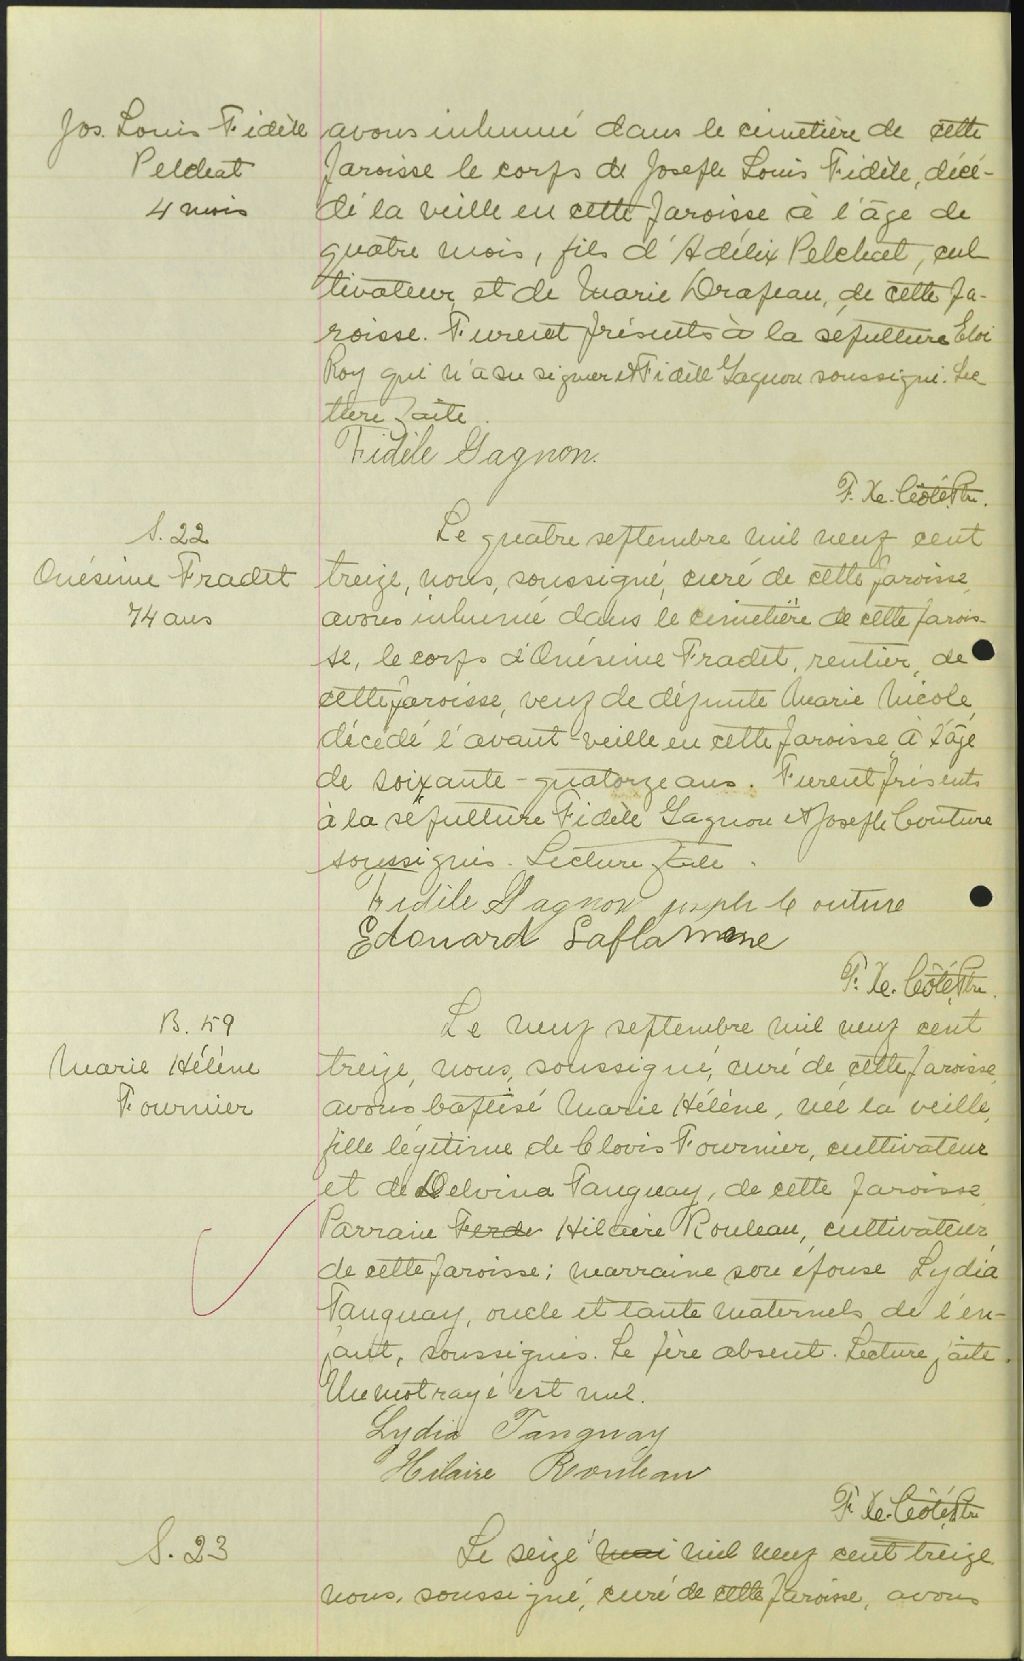 Jos. Louis Fidèle
Pelchat
4 mois
avons inhumé dans le cimetière de cette
paroisse le corps de Joseph Louis Fidèle, décé-
dé la veille en cette paroisse à l'âge de
quatre mois, fils d'Adélix Pelchat, cul
tivateur, et de Marie Drapeau, de cette pa-
roisse. Furent présents à la sépulture Eloi
Roy qui n'a su signer et Fidèle Gagnon soussigné. Lec
ture faite.
Fidèle Gagnon.
F. X. Côté, Ptre.
S. 22
Onésime Fradet
74 ans
Le quatre septembre mil neuf cent
treize, nous, soussigné, curé de cette paroisse,
avons inhumé dans le cimetière de cette parois-
se, le corps d'Onésime Fradet, rentier, de
cette paroisse, veuf de défunte Marie Nicole,
décédé l'avant-veille en cette paroisse, à l'âge
de soixante-quatorze ans. Furent présents
à la sépulture Fidèle Gagnon et Joseph Couture
soussignés. Lecture faite.
Fidèle Gagnon joseph Couture
Edouard Laflamme
F. X. Côté, Ptre.
B. 59
Marie Hélène
Fournier
Le neuf septembre mil neuf cent
treize, nous, soussigné, curé de cette paroisse,
avons baptisé Marie Hélène, née la veille,
fille légitime de Clovis Fournier, cultivateur
et de Delvina Tanguay, de cette paroisse.
Parrain Ferde Hilaire Rouleau, cultivateur,
de cette paroisse; marraine son épouse Lydia
Tanguay, oncle et tante maternels de l'en-
fant, soussignés. Le père absent. Lecture faite.
Un mot rayé est nul.
Lydia Tanguay
Hilaire Rouleau
F. X. Côté, Ptre
S. 23
Le seize mai mil neuf cent treize
nous, soussigné, curé de cette paroisse, avons